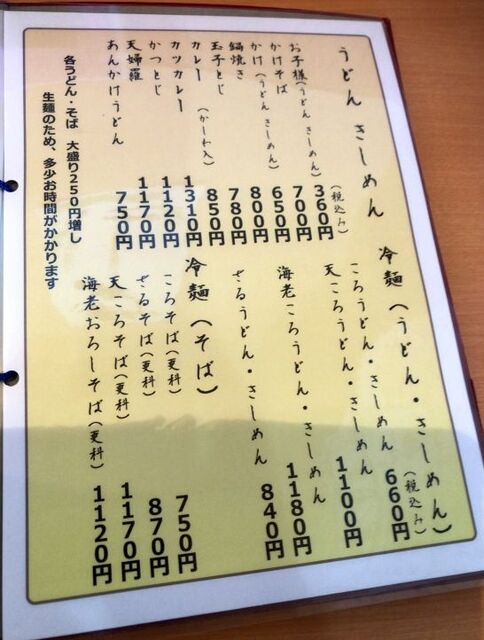 うどん きしめん
(税込み)
お子様(うどん きしめん) 360円
かけそば 700円
かけ(うどん きしめん) 650円
鍋焼き 800円
玉子とじ 780円
カレー (かしわ入) 850円
カツカレー 1310円
かつとじ 1120円
天婦羅 1170円
あんかけうどん 750円
各うどん・そば 大盛り250円増し
生麺のため、多少お時間がかかります
冷麺(うどん・きしめん)
(税込み)
ころうどん・きしめん 660円
天ころうどん・きしめん 1100円
海老ころうどん・きしめん 1180円
ざるうどん・きしめん 840円
冷麺(そば)
ころそば(更科) 750円
ざるそば(更科) 870円
天ころそば(更科) 1170円
海老おろしそば(更科) 1120円